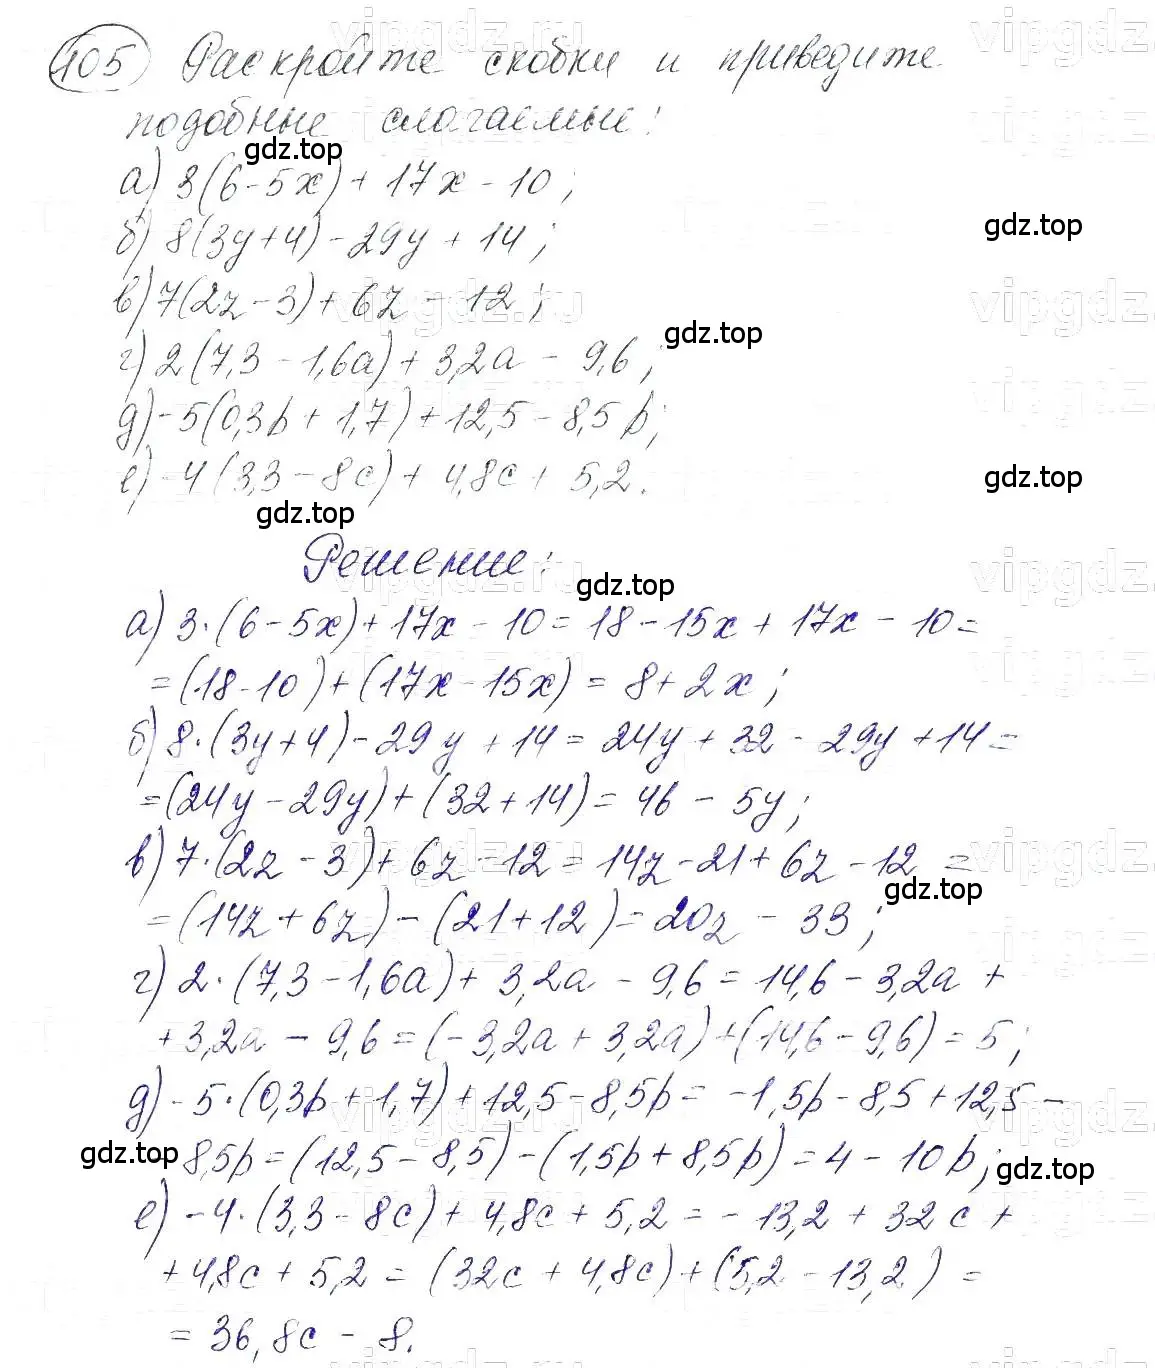 105 Раскройте скобки и приведите
подобные слагаемые:
gdz.top
а) 3(6-5x)+17x-10;
б) 8(3y+4)-29y+14;
gdz.top
в) 7(2z-3)+6z-12;
gdz.top
г) 2(7,3-1,6a)+3,2a-9,6;
д) -5(0,3b+1,7)+12,5-8,5b;
е) -4(3,3-8c)+4,8c+5,2.
gdz.top
gdz.top
Решение:
gdz.top
а) 3·(6-5x)+17x-10=18-15x+17x-10=
=(18-10)+(17x-15x)=8+2x;
б) 8·(3y+4)-29y+14=24y+32-29y+14=
=(24y-29y)+(32+14)=46-5y;
в) 7·(2z-3)+6z-12=14z-21+6z-12=
gdz.top
=(14z+6z)-(21+12)=20z-33;
г) 2·(7,3-1,6a)+3,2a-9,6=14,6-3,2a+
+3,2a-9,6=(-3,2a+3,2a)+(14,6-9,6)=5;
д) -5·(0,3b+1,7)+12,5-8,5b=-1,5b-8,5+12,5-
gdz.top 8,5b=(12,5-8,5)-(1,5b+8,5b)=4-10b;
gdz.top
е) -4·(3,3-8c)+4,8c+5,2=-13,2+32c+
+4,8c+5,2=(32c+4,8c)+(5,2-13,2)=
=36,8c-8.
vipgdz.ru